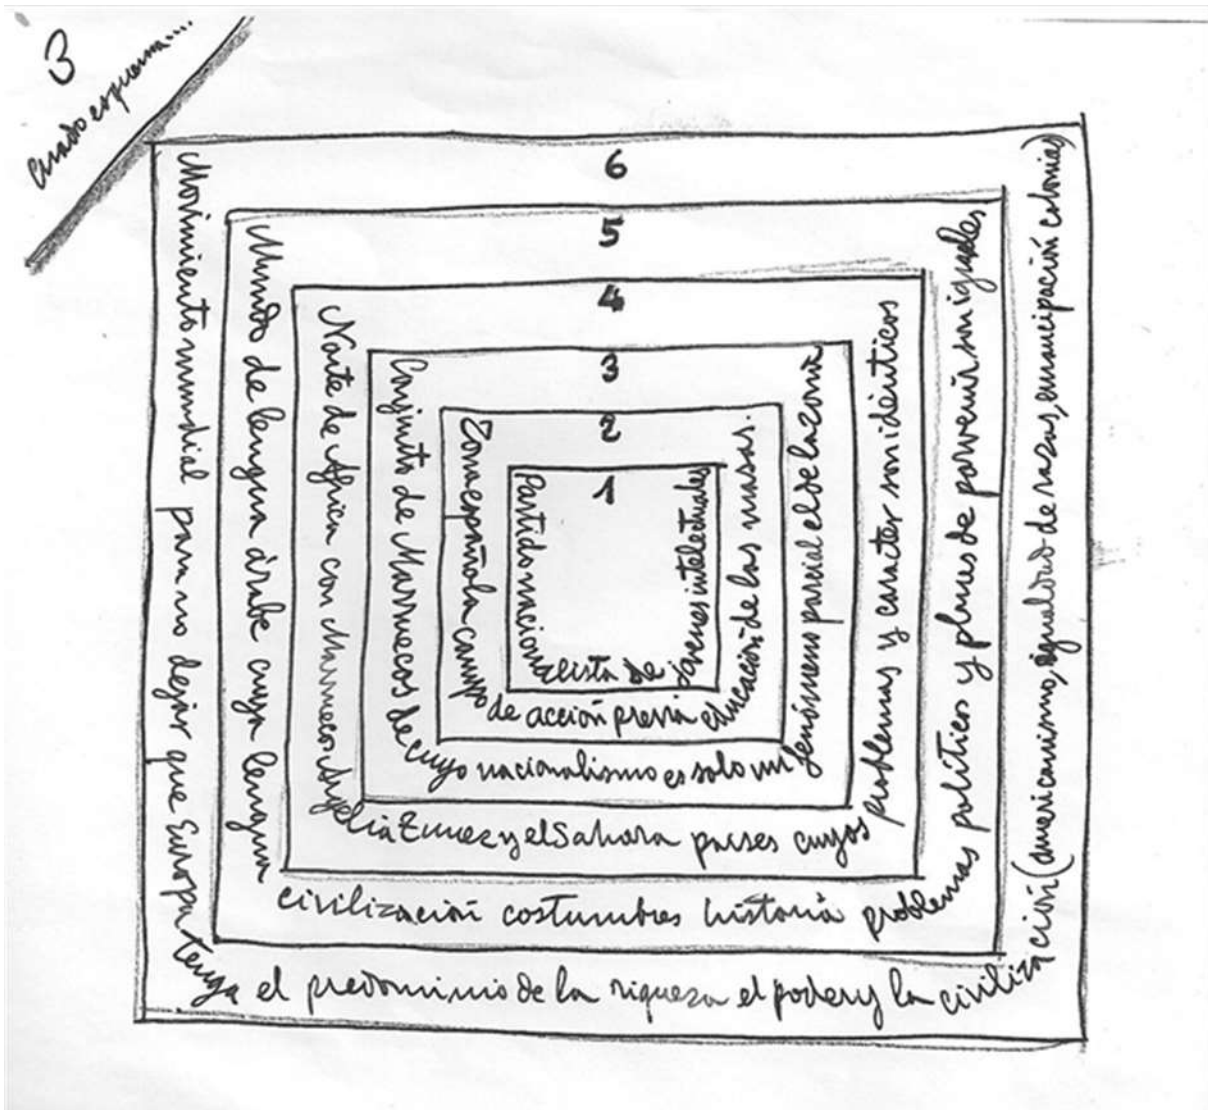 3
Cuadro esquema...
6
Movimiento mundial para no dejar que Europa tenga el predominio de la riqueza el poder y la civilización (americanismo, igualdad de razas, emancipación colonias)
5
Mundo de lengua árabe cuya lengua civilización costumbres historia problemas políticos y planes de porvenir son iguales
4
Norte de Africa con Marruecos Argelia Tunez y el Sahara paises cuyos problemas y caracter son idénticos
3
Conjunto de Marruecos de cuyo nacionalismo es solo un fenómeno parcial el de la zona
2
Zona española campo de acción previa educación de las masas.
1
Partido nacionalista de jovenes intelectuales